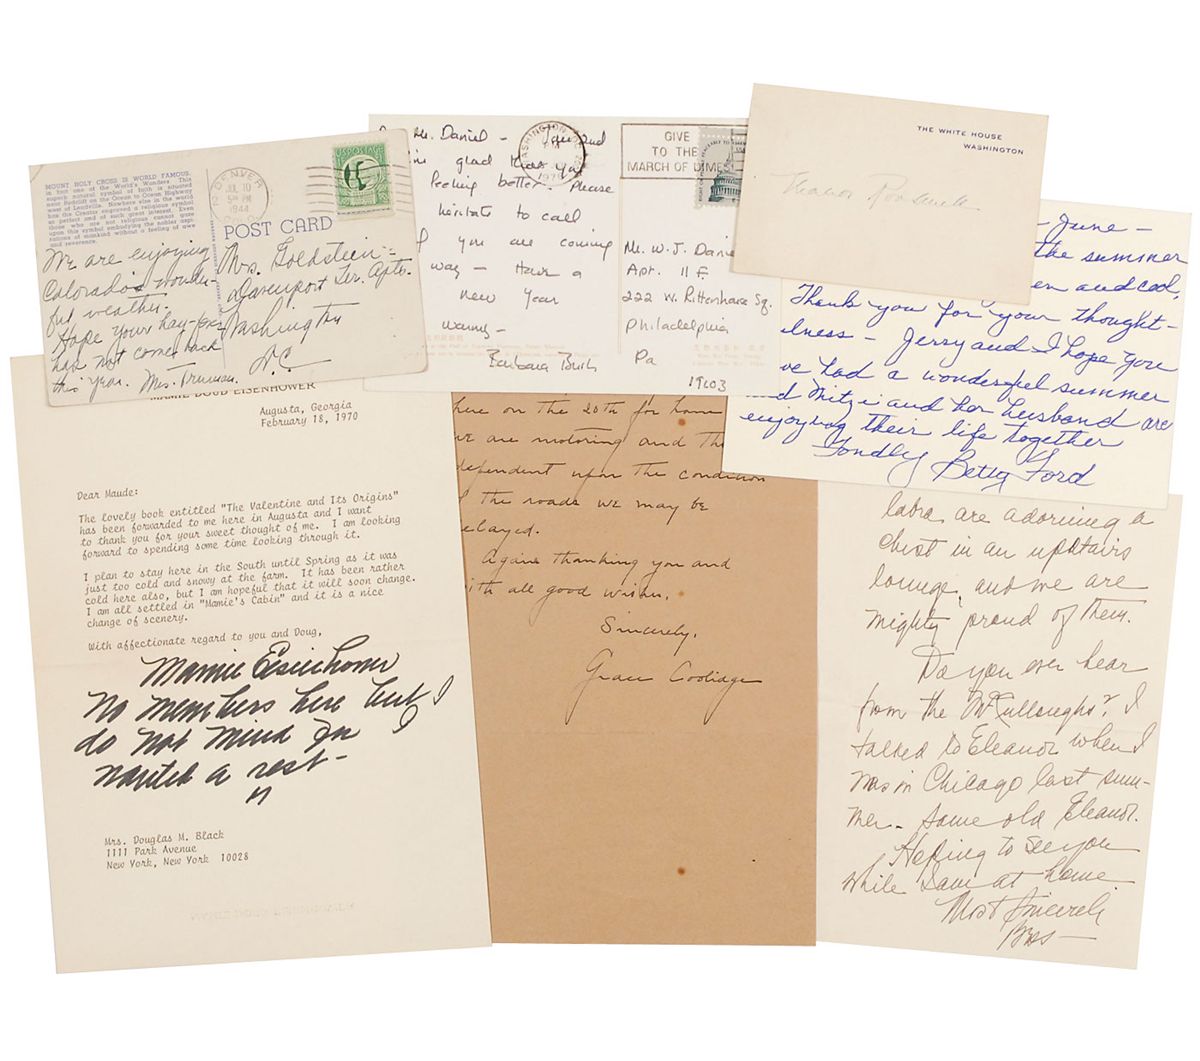 MOUNT HOLY CROSS IS WORLD FAMOUS.
DENVER
JUL 10
5 PM
1944
COLO.
U.S. POSTAGE
POST CARD
We are enjoying
Colorado's wonder-
ful weather.
Hope your hay-fever
has not come back
this year. Mrs. Truman.
Mrs. Goldstein
Davenport Ter. Apts.
Washington
D.C.
Mr. Daniel – 
glad that you
feeling better. Please
hesitate to call
if you are coming
way – Have a
new year
warmly –
Barbara Bush
WASHINGTON
GIVE
TO THE
MARCH OF DIMES
Mr. W. J. Daniel
Apt. 11 F.
222 W. Rittenhouse Sq.
Philadelphia
Pa
19103
THE WHITE HOUSE
WASHINGTON
Eleanor Roosevelt
June –
the summer
and cool,
Thank you for your thought-
fulness – Jerry and I hope you
have had a wonderful summer
and Mitzi and her husband are
enjoying their life together
Fondly Betty Ford
MAMIE DOUD EISENHOWER
Augusta, Georgia
February 18, 1970
Dear Maude:
The lovely book entitled "The Valentine and Its Origins"
has been forwarded to me here in Augusta and I want
to thank you for your sweet thought of me. I am looking
forward to spending some time looking through it.
I plan to stay here in the South until Spring as it was
just too cold and snowy at the farm. It has been rather
cold here also, but I am hopeful that it will soon change.
I am all settled in "Mamie's Cabin" and it is a nice
change of scenery.
With affectionate regard to you and Doug,
Mamie Eisenhower
No members here but I
do not mind for I
wanted a rest –
Mrs. Douglas M. Black
1111 Park Avenue
New York, New York 10028
here on the 20th for home
we are motoring and
dependent upon the condition
of the roads we may be
delayed.
Again thanking you and
with all good wishes,
Sincerely,
Grace Coolidge
labra are adorning a
chest in an upstairs
lounge, and we are
mighty proud of them.
Do you ever hear
from the McCulloughs? I
talked to Eleanor when I
was in Chicago last sum-
mer – same old Eleanor.
Hoping to see you
while I am at home
Most sincerely
Bess –